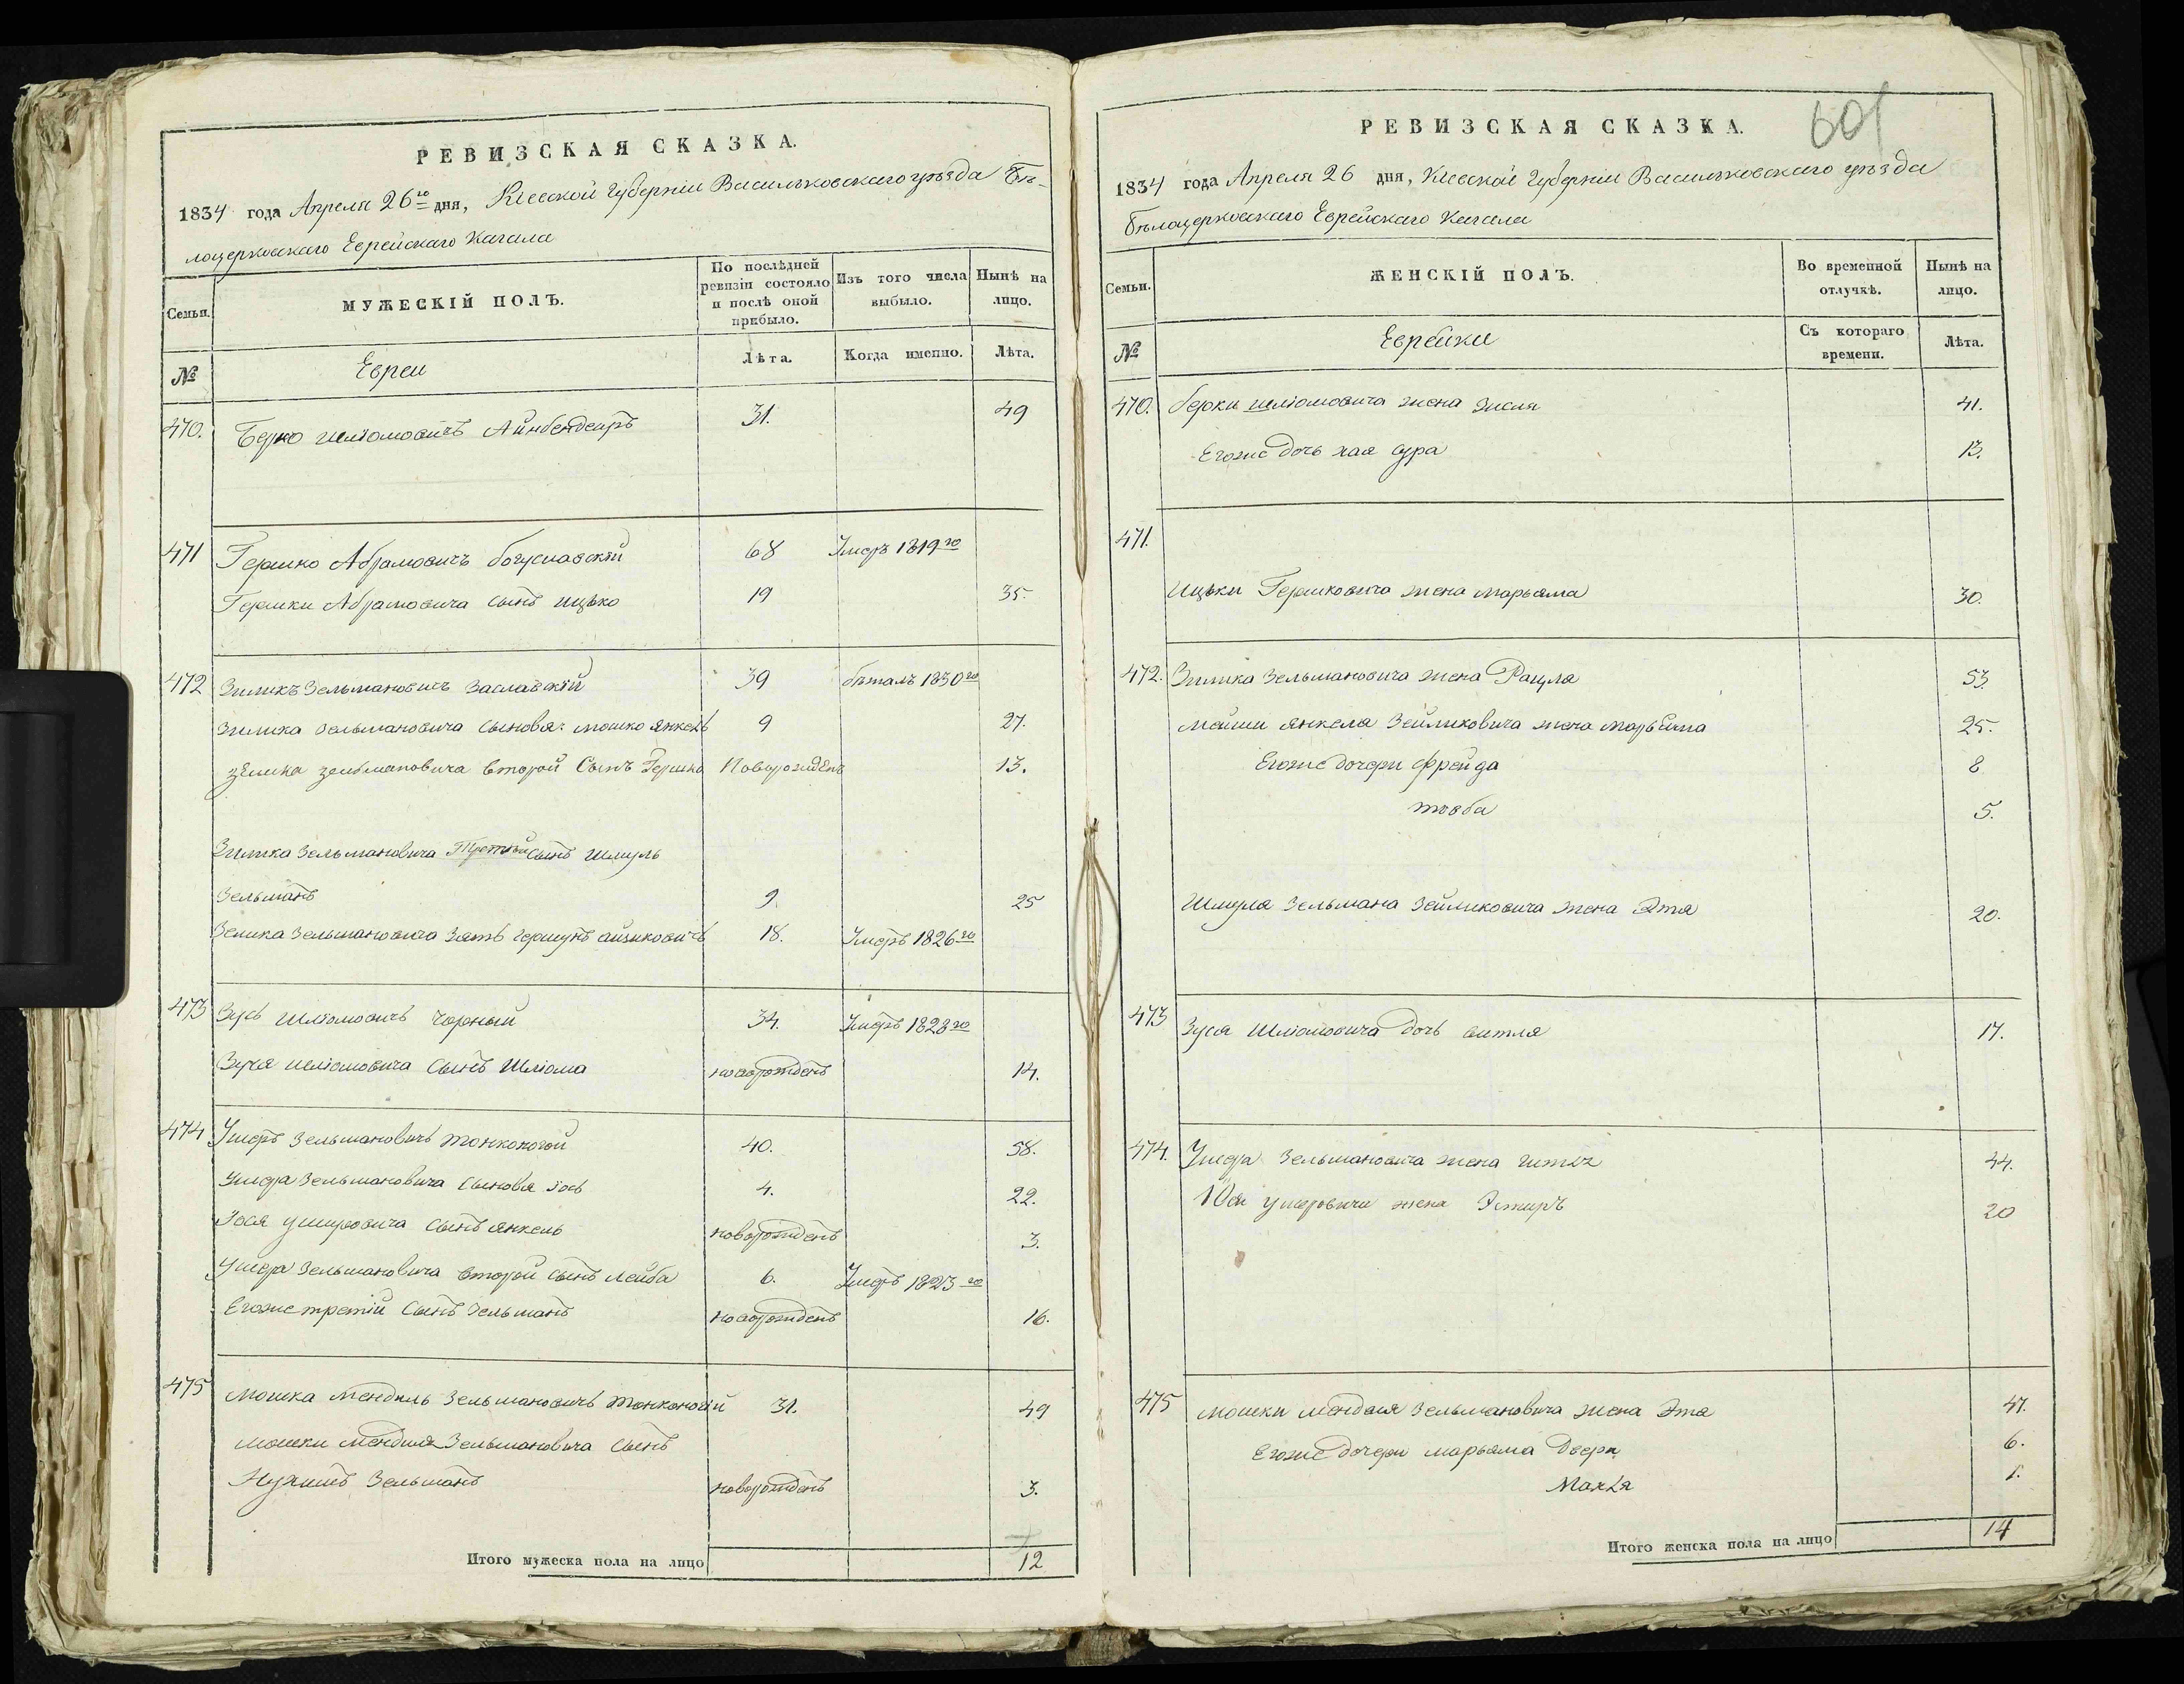 РЕВИЗСКАЯ СКАЗКА.
1834 года Апреля 26го дня, Киевской Губерніи Васильковскаго уѣзда Бѣ-
лоцерковскаго Еврейскаго Кагала
Семьи.
МУЖЕСКІЙ ПОЛЪ.
По послѣдней ревизіи состояло и послѣ оной прибыло.
Изъ того числа выбыло.
Нынѣ на лицо.
№
Евреи
Лѣта.
Когда именно.
Лѣта.
470. Берко Шліомовичъ Айнбендеръ 31. 49
471 Гершко Абрамовичъ Богуславскій 68 Умеръ 1819го
Гершки Абрамовича сынъ Ицько 19 35.
472 Зиликъ Зельмановичъ Заславскій 39 бѣжалъ 1830го
Зилика Зельмановича сыновя: Мошко Янкель 9 27.
Зелика Зельмановича второй Сынъ Гершко Новорожденъ 13.
Зилика Зельмановича Третій сынъ Шмуль
Зельманъ 9. 25
Зелика Зельмановича Зять Гершунъ Айзиковичъ 18. Умеръ 1826го
473 Зусь Шліомовичъ Чорный 34. Умеръ 1828го
Зуся Шліомовича Сынъ Шліома новорожденъ 14.
474 Ушеръ Зельмановичъ Тонконогой 40. 58.
Ушера Зельмановича Сыновя Іось 4. 22.
Іося Ушеровича Сынъ Янкель новорожденъ 3.
Ушера Зельмановича второй сынъ Лейба 6. Умеръ 1823го
Егоже третій Сынъ Зельманъ новорожденъ 16.
475 Мошка Мендель Зельмановичъ Тонконогій 31. 49
Мошки Менделя Зельмановича Сынъ
Нухимъ Зельманъ новорожденъ 3.
Итого мужеска пола на лицо 12
601
РЕВИЗСКАЯ СКАЗКА.
1834 года Апреля 26 дня, Киевской Губерніи Васильковскаго уѣзда
Бѣлоцерковскаго Еврейскаго Кагала
Семьи.
ЖЕНСКІЙ ПОЛЪ.
Во временной отлучкѣ.
Нынѣ на лицо.
№
Еврейки
Съ котораго времени.
Лѣта.
470. Берки Шліомовича жена Зисля 41.
Егоже Дочь Хая Сура 13.
471.
Ицьки Гершковича жена Марьяма 30.
472. Зилика Зельмановича жена Рацля 53.
Мошки Янкеля Зейликовича жена Марьяма 25.
Егоже дочери Фрейда 8
Тоба 5.
Шмуля Зельмана Зейликовича жена Этя 20.
473 Зуся Шліомовича Дочь Битля 17.
474. Ушера Зельмановича жена 44.
Іося Ушеровича жена Эстиръ 20
475 Мошки Менделя Зельмановича жена Этя 47.
Егоже Дочери Марьяма Двера 6.
Махля 1.
Итого женска пола на лицо 14